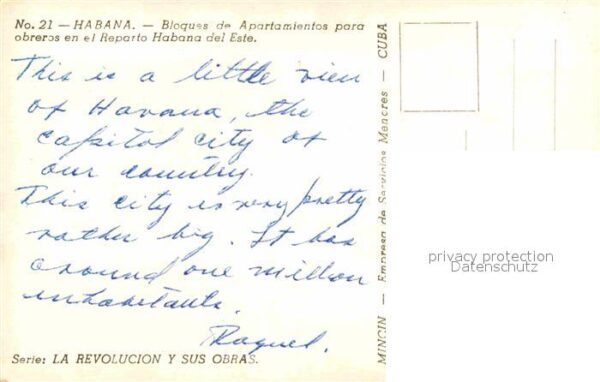 No. 21 — HABANA. — Bloques de Apartamientos para
obreros en el Reparto Habana del Este.
This is a little view
of Havana, the
capitol city of
our country.
This city is very pretty
rather big. It has
around one million
inhabitants.
Raquel.
Serie: LA REVOLUCION Y SUS OBRAS.
MINCIN — Empresa de Servicios Menores — CUBA
privacy protection
Datenschutz